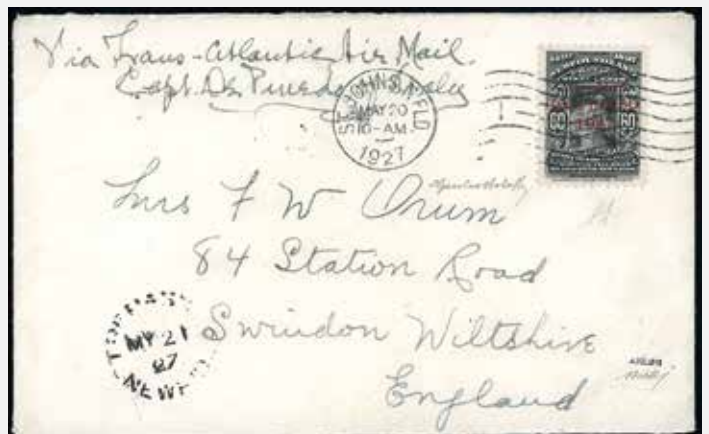 Via Trans-Atlantic Air Mail.
Capt. De Pinedo
ST. JOHN'S NFLD.
MAY 20
10-AM
1927
60 60
Mrs F W Orum
84 Station Road
Swindon Wiltshire
England
MY 21
27
NEWF